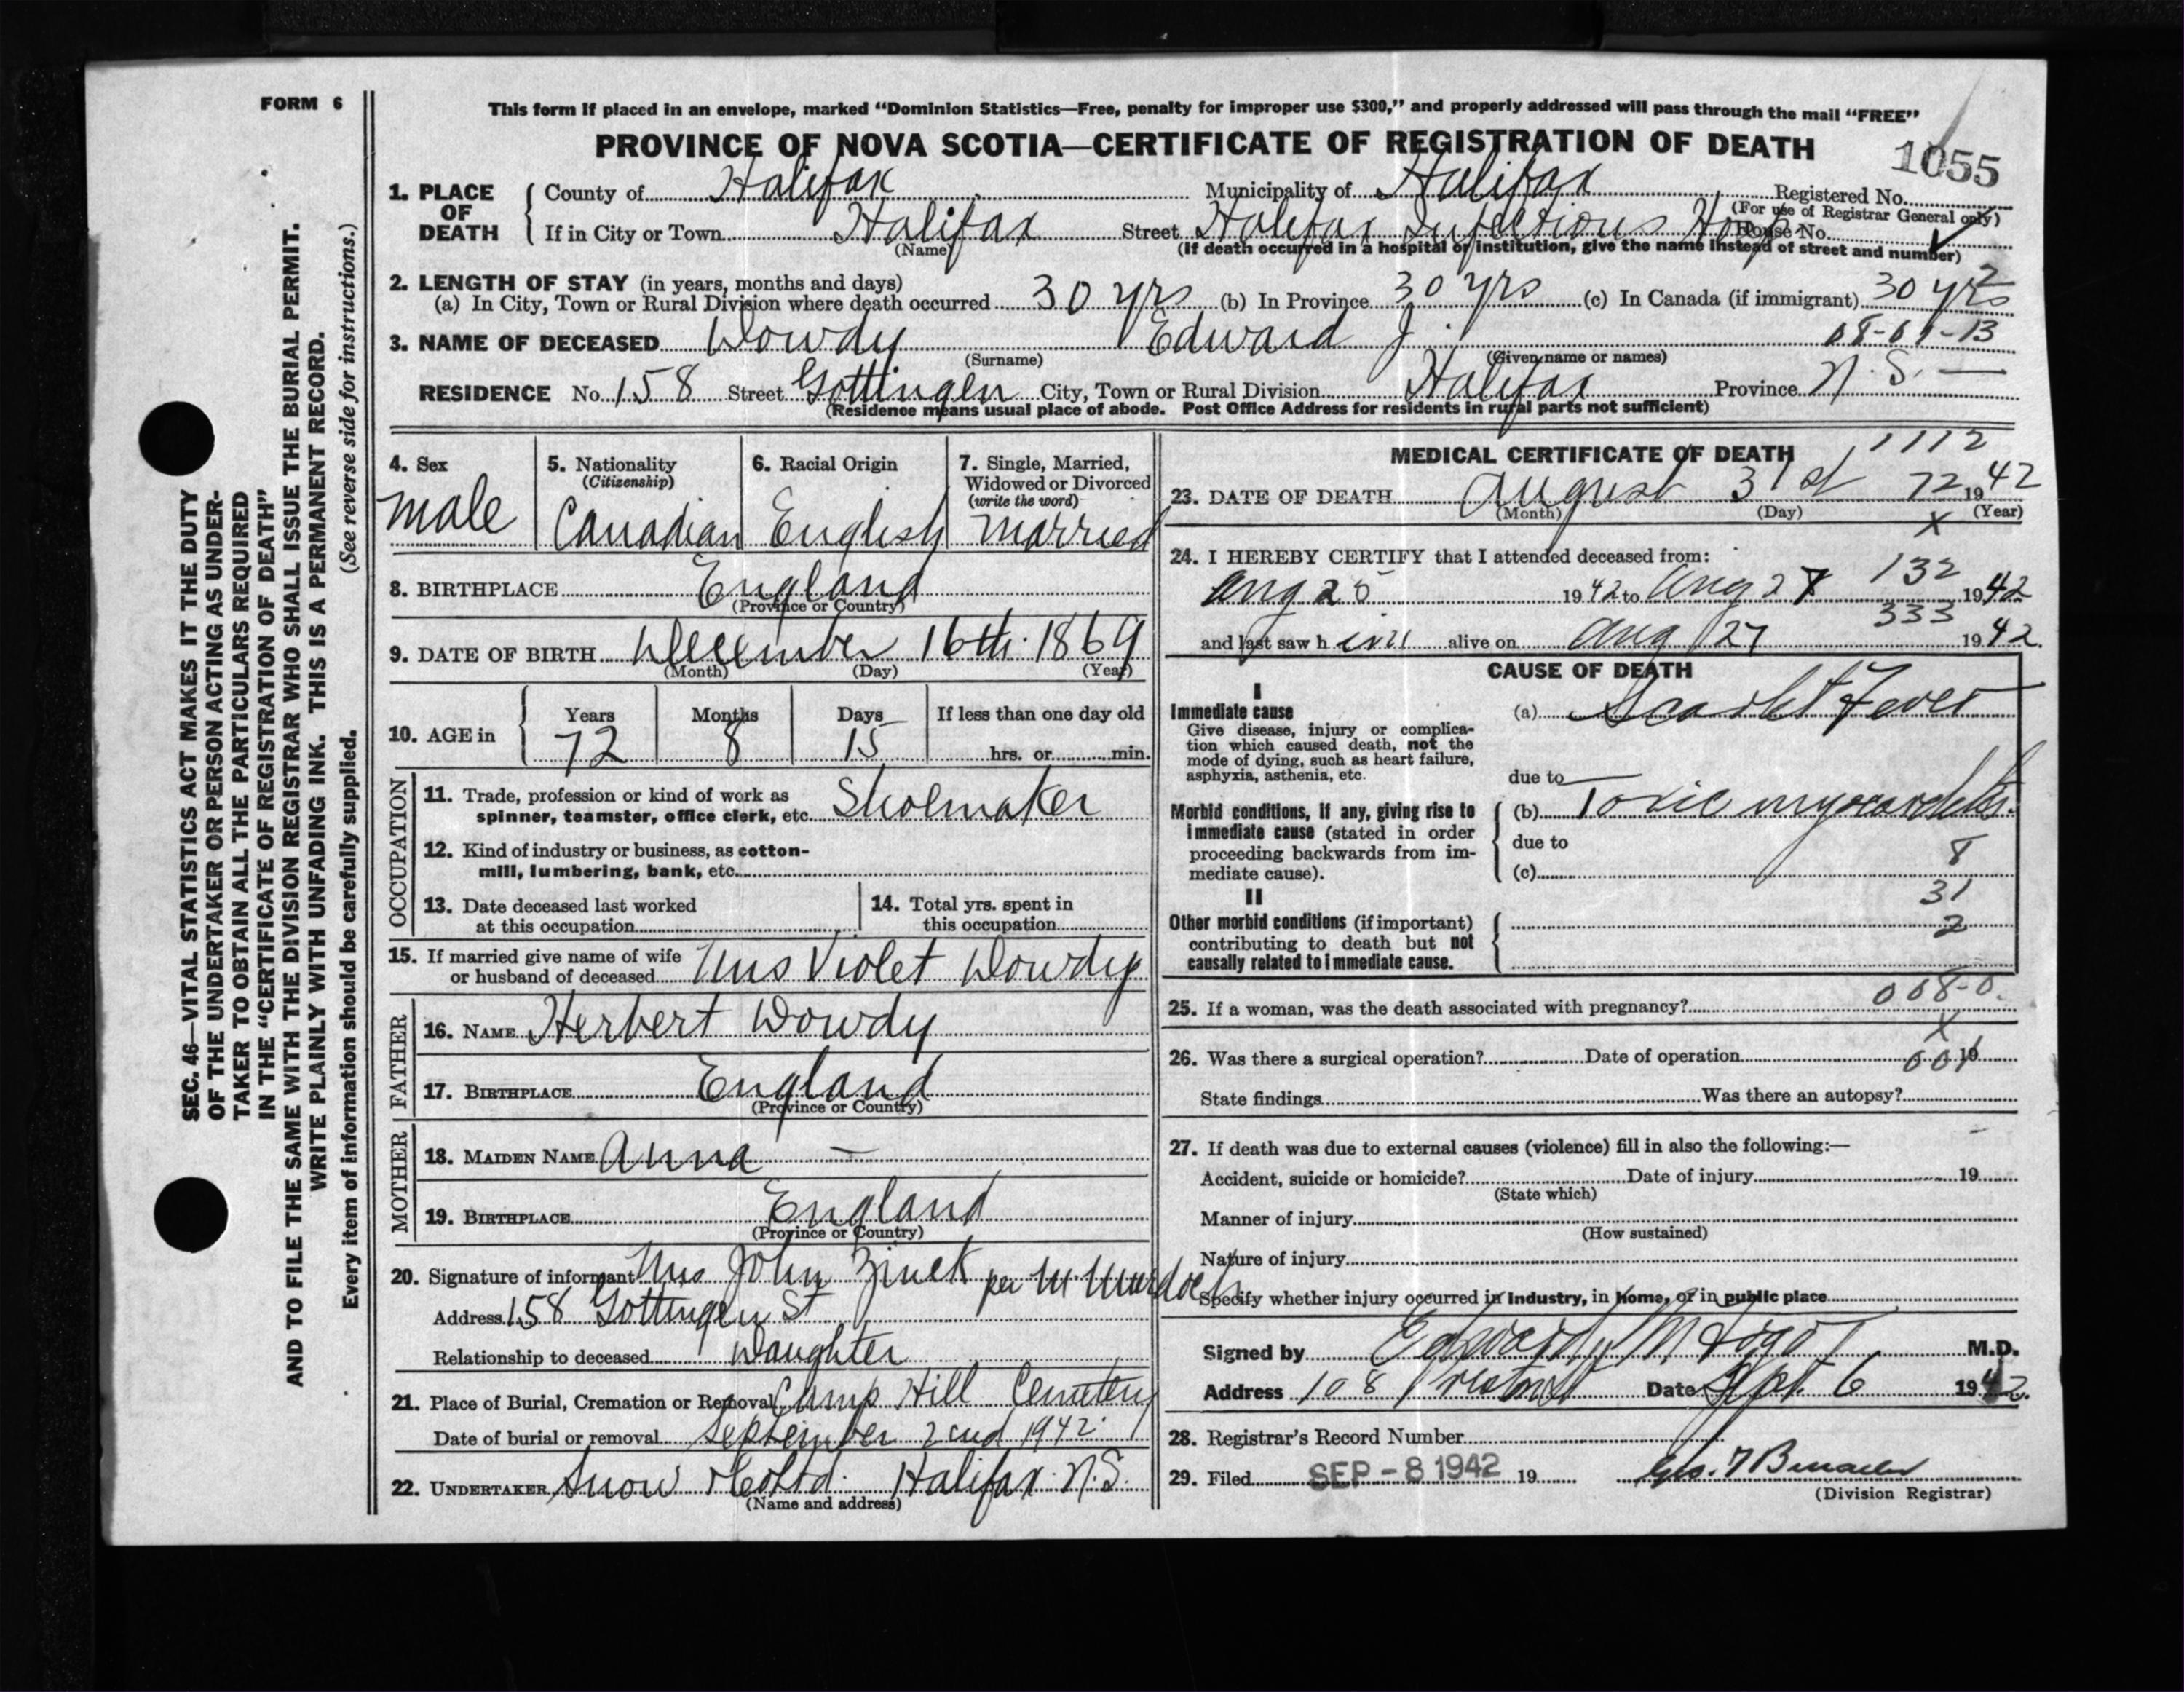 FORM 6
This form if placed in an envelope, marked “Dominion Statistics—Free, penalty for improper use $300,” and properly addressed will pass through the mail “FREE”
PROVINCE OF NOVA SCOTIA—CERTIFICATE OF REGISTRATION OF DEATH
1055
1. PLACE OF DEATH
County of Halifax Municipality of Halifax Registered No.
(For use of Registrar General only)
If in City or Town Halifax Street Halifax Infectious Hosp House No.
(Name) (If death occurred in a hospital or institution, give the name instead of street and number)
2. LENGTH OF STAY (in years, months and days)
(a) In City, Town or Rural Division where death occurred 30 yrs (b) In Province 30 yrs (c) In Canada (if immigrant) 30 yrs
2
3. NAME OF DECEASED Dowdy Edward J. 08-01-13
(Surname) (Given name or names)
RESIDENCE No. 158 Street Gottingen City, Town or Rural Division Halifax Province N.S. —
(Residence means usual place of abode. Post Office Address for residents in rural parts not sufficient)
4. Sex
male
5. Nationality
(Citizenship)
Canadian
6. Racial Origin
English
7. Single, Married,
Widowed or Divorced
(write the word)
Married
8. BIRTHPLACE England
(Province or Country)
9. DATE OF BIRTH December 16th. 1869
(Month) (Day) (Year)
10. AGE in
Years Months Days If less than one day old
72 8 15 hrs. or min.
OCCUPATION
11. Trade, profession or kind of work as
spinner, teamster, office clerk, etc. Shoemaker
12. Kind of industry or business, as cotton-
mill, lumbering, bank, etc.
13. Date deceased last worked
at this occupation
14. Total yrs. spent in
this occupation
15. If married give name of wife
or husband of deceased Mrs Violet Dowdy
FATHER
16. NAME Herbert Dowdy
17. BIRTHPLACE England
(Province or Country)
MOTHER
18. MAIDEN NAME Anna —
19. BIRTHPLACE England
(Province or Country)
20. Signature of informant Mrs John Zinck per M. Murdoch
Address 158 Gottingen St
Relationship to deceased Daughter
21. Place of Burial, Cremation or Removal Camp Hill Cemetery
Date of burial or removal September 2nd 1942.
22. UNDERTAKER Snow & Co Ltd. Halifax. N.S.
(Name and address)
MEDICAL CERTIFICATE OF DEATH
1112
23. DATE OF DEATH August 31st 72 1942
(Month) (Day) (Year)
X
24. I HEREBY CERTIFY that I attended deceased from:
132
Aug 25 1942 to Aug 27 1942
333
and last saw him alive on Aug 27 1942.
CAUSE OF DEATH
I
Immediate cause
Give disease, injury or complica-
tion which caused death, not the
mode of dying, such as heart failure,
asphyxia, asthenia, etc.
(a) Scarlet Fever
due to
Morbid conditions, if any, giving rise to
immediate cause (stated in order
proceeding backwards from im-
mediate cause).
(b) Toxic myocarditis.
due to
8
(c)
31
II
Other morbid conditions (if important)
contributing to death but not
causally related to immediate cause.
2
008-0.
25. If a woman, was the death associated with pregnancy?
X
26. Was there a surgical operation? Date of operation 19
001
State findings Was there an autopsy?
27. If death was due to external causes (violence) fill in also the following:—
Accident, suicide or homicide? Date of injury 19
(State which)
Manner of injury
(How sustained)
Nature of injury
Specify whether injury occurred in industry, in home, or in public place
Signed by Edward M. M.D.
Address 108 Date Sept. 6 1942.
28. Registrar's Record Number
29. Filed SEP -8 1942 19
(Division Registrar)
SEC. 46—VITAL STATISTICS ACT MAKES IT THE DUTY
OF THE UNDERTAKER OR PERSON ACTING AS UNDER-
TAKER TO OBTAIN ALL THE PARTICULARS REQUIRED
IN THE “CERTIFICATE OF REGISTRATION OF DEATH”
AND TO FILE THE SAME WITH THE DIVISION REGISTRAR WHO SHALL ISSUE THE BURIAL PERMIT.
WRITE PLAINLY WITH UNFADING INK. THIS IS A PERMANENT RECORD.
Every item of information should be carefully supplied. (See reverse side for instructions.)